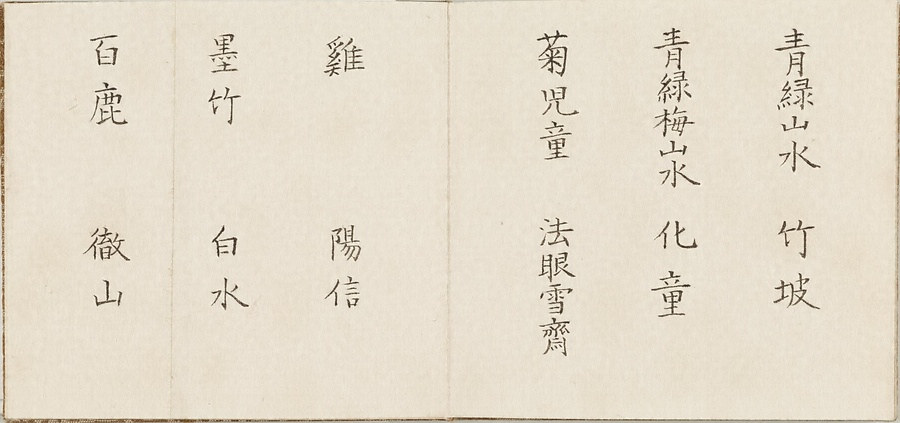 青緑山水 竹坡
青緑梅山水 化童
菊児童 法眼雪齋
雞 陽信
墨竹 白水
百鹿 徹山